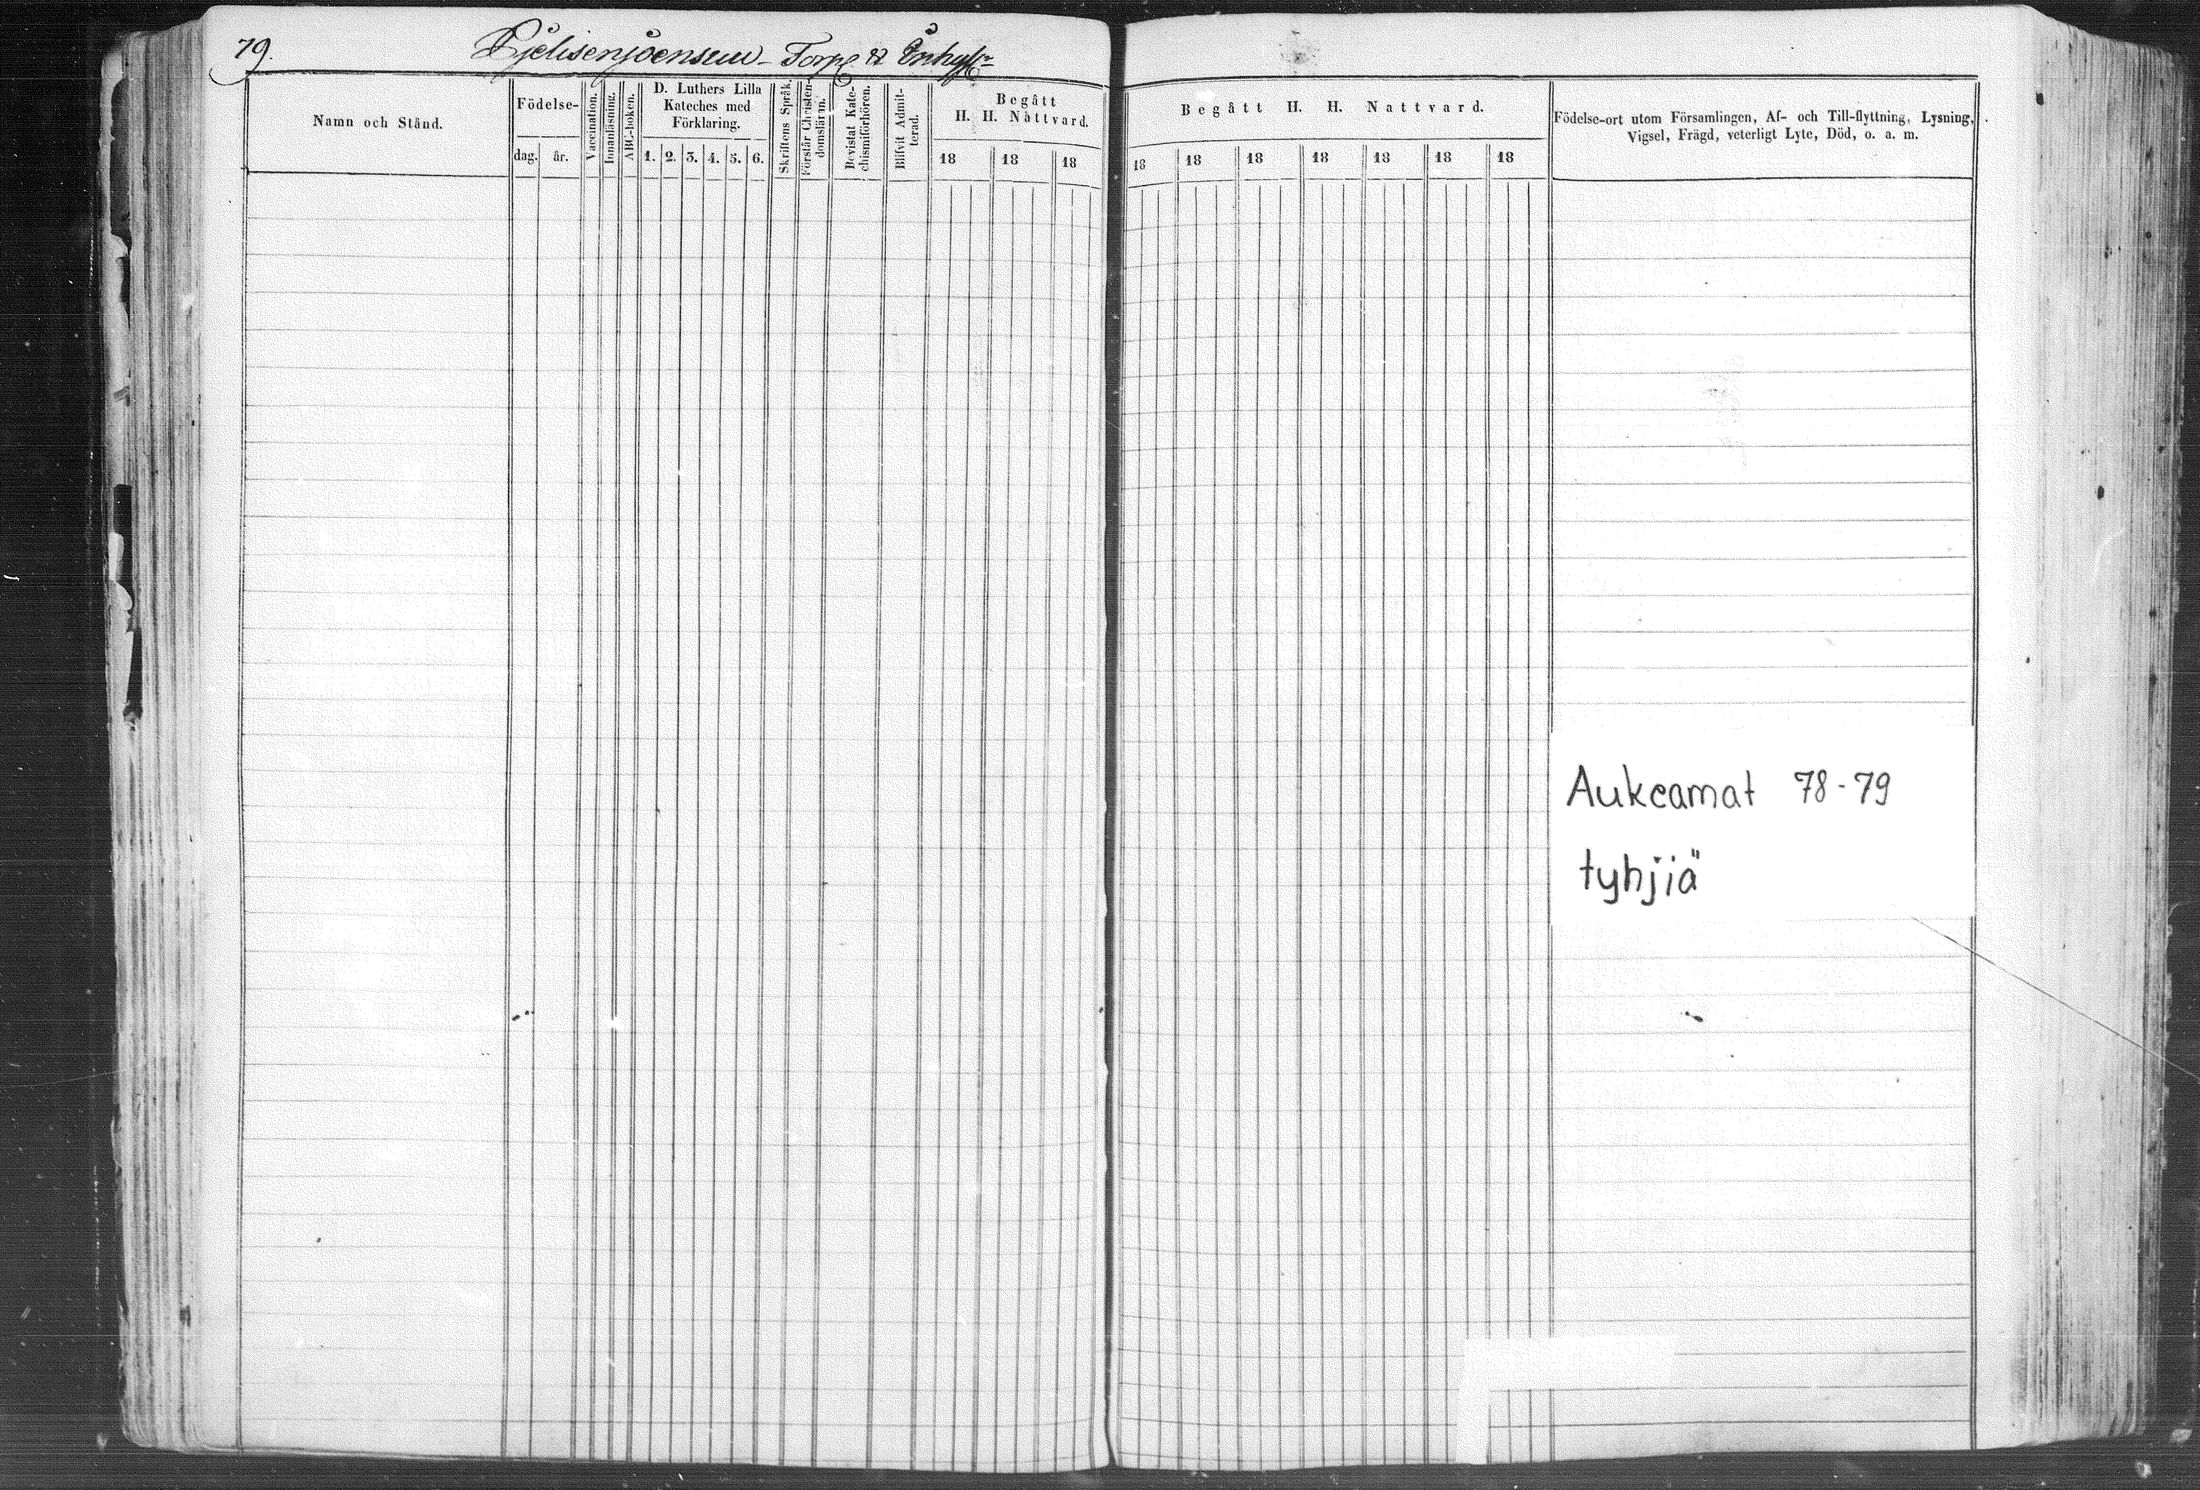 79.
Pjelisenjoensuu - Torp. & Inhys.
Namn och Stånd.
Födelse-
dag. år.
Vaccination.
Innanläsning.
ABC-boken.
D. Luthers Lilla
Kateches med
Förklaring.
1. 2. 3. 4. 5. 6.
Skriftens Språk.
Förstår Christen-
domsläran.
Bevistat Kate-
chismiförhören.
Blifvit Admit-
terad.
Begått
H. H. Nattvard.
18 18 18
Begått H. H. Nattvard.
18 18 18 18 18 18 18
Födelse-ort utom Församlingen, Af- och Till-flyttning, Lysning,
Vigsel, Frägd, veterligt Lyte, Död, o. a. m.
Aukeamat 78-79
tyhjiä